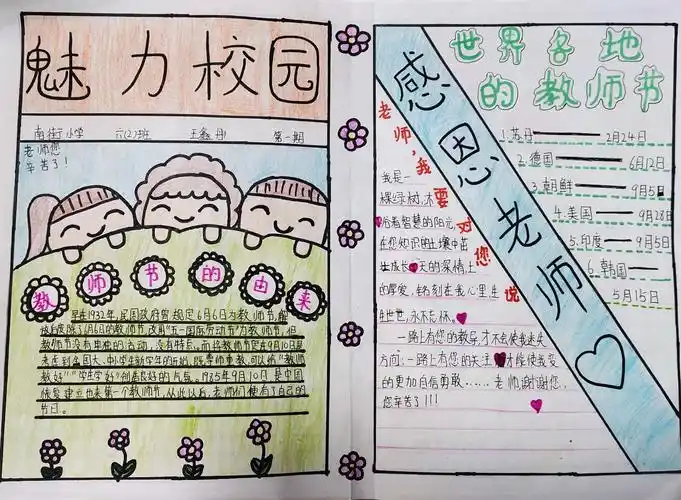 魅力校园
南街小学 六(2)班 王鑫彤 第一期
老师您
辛苦了！
教师节的由来
早在1932年，民国政府曾规定6月6日为教师节，解
放后废除了6月6日的教师节，改用"五一国际劳动节"为教师节，但
教师节没有单独的活动，没有特点。而将教师节定在9月10日是
考虑到全国大、中小学生新学年的开始，既尊师重教，可以给"教师
教好""学生学好"创造良好的气氛。1985年9月10日，是中国
恢复建立
第一个教师节，从此以后，老师们便有了自己的
节日。
感恩老师
世界各地
的教师节
1.苏丹 2月24日
2.德国 6月12日
3.朝鲜 9月5日
4.美国 9月28日
5.印度 9月5日
6.韩国
5月15日
老师，我要对您说
我是一
棵绿树，沐
浴着智慧的阳光，
在您知识的土壤中茁
壮成长
天的深情上
的厚爱，铭刻在我心里生
生世世，永不忘怀。
一路上有您的教导，才不会使我迷失
方向；一路上有您的关注，才能使我变
的更加自信勇敢……老师，谢谢您，
您辛苦了!!!